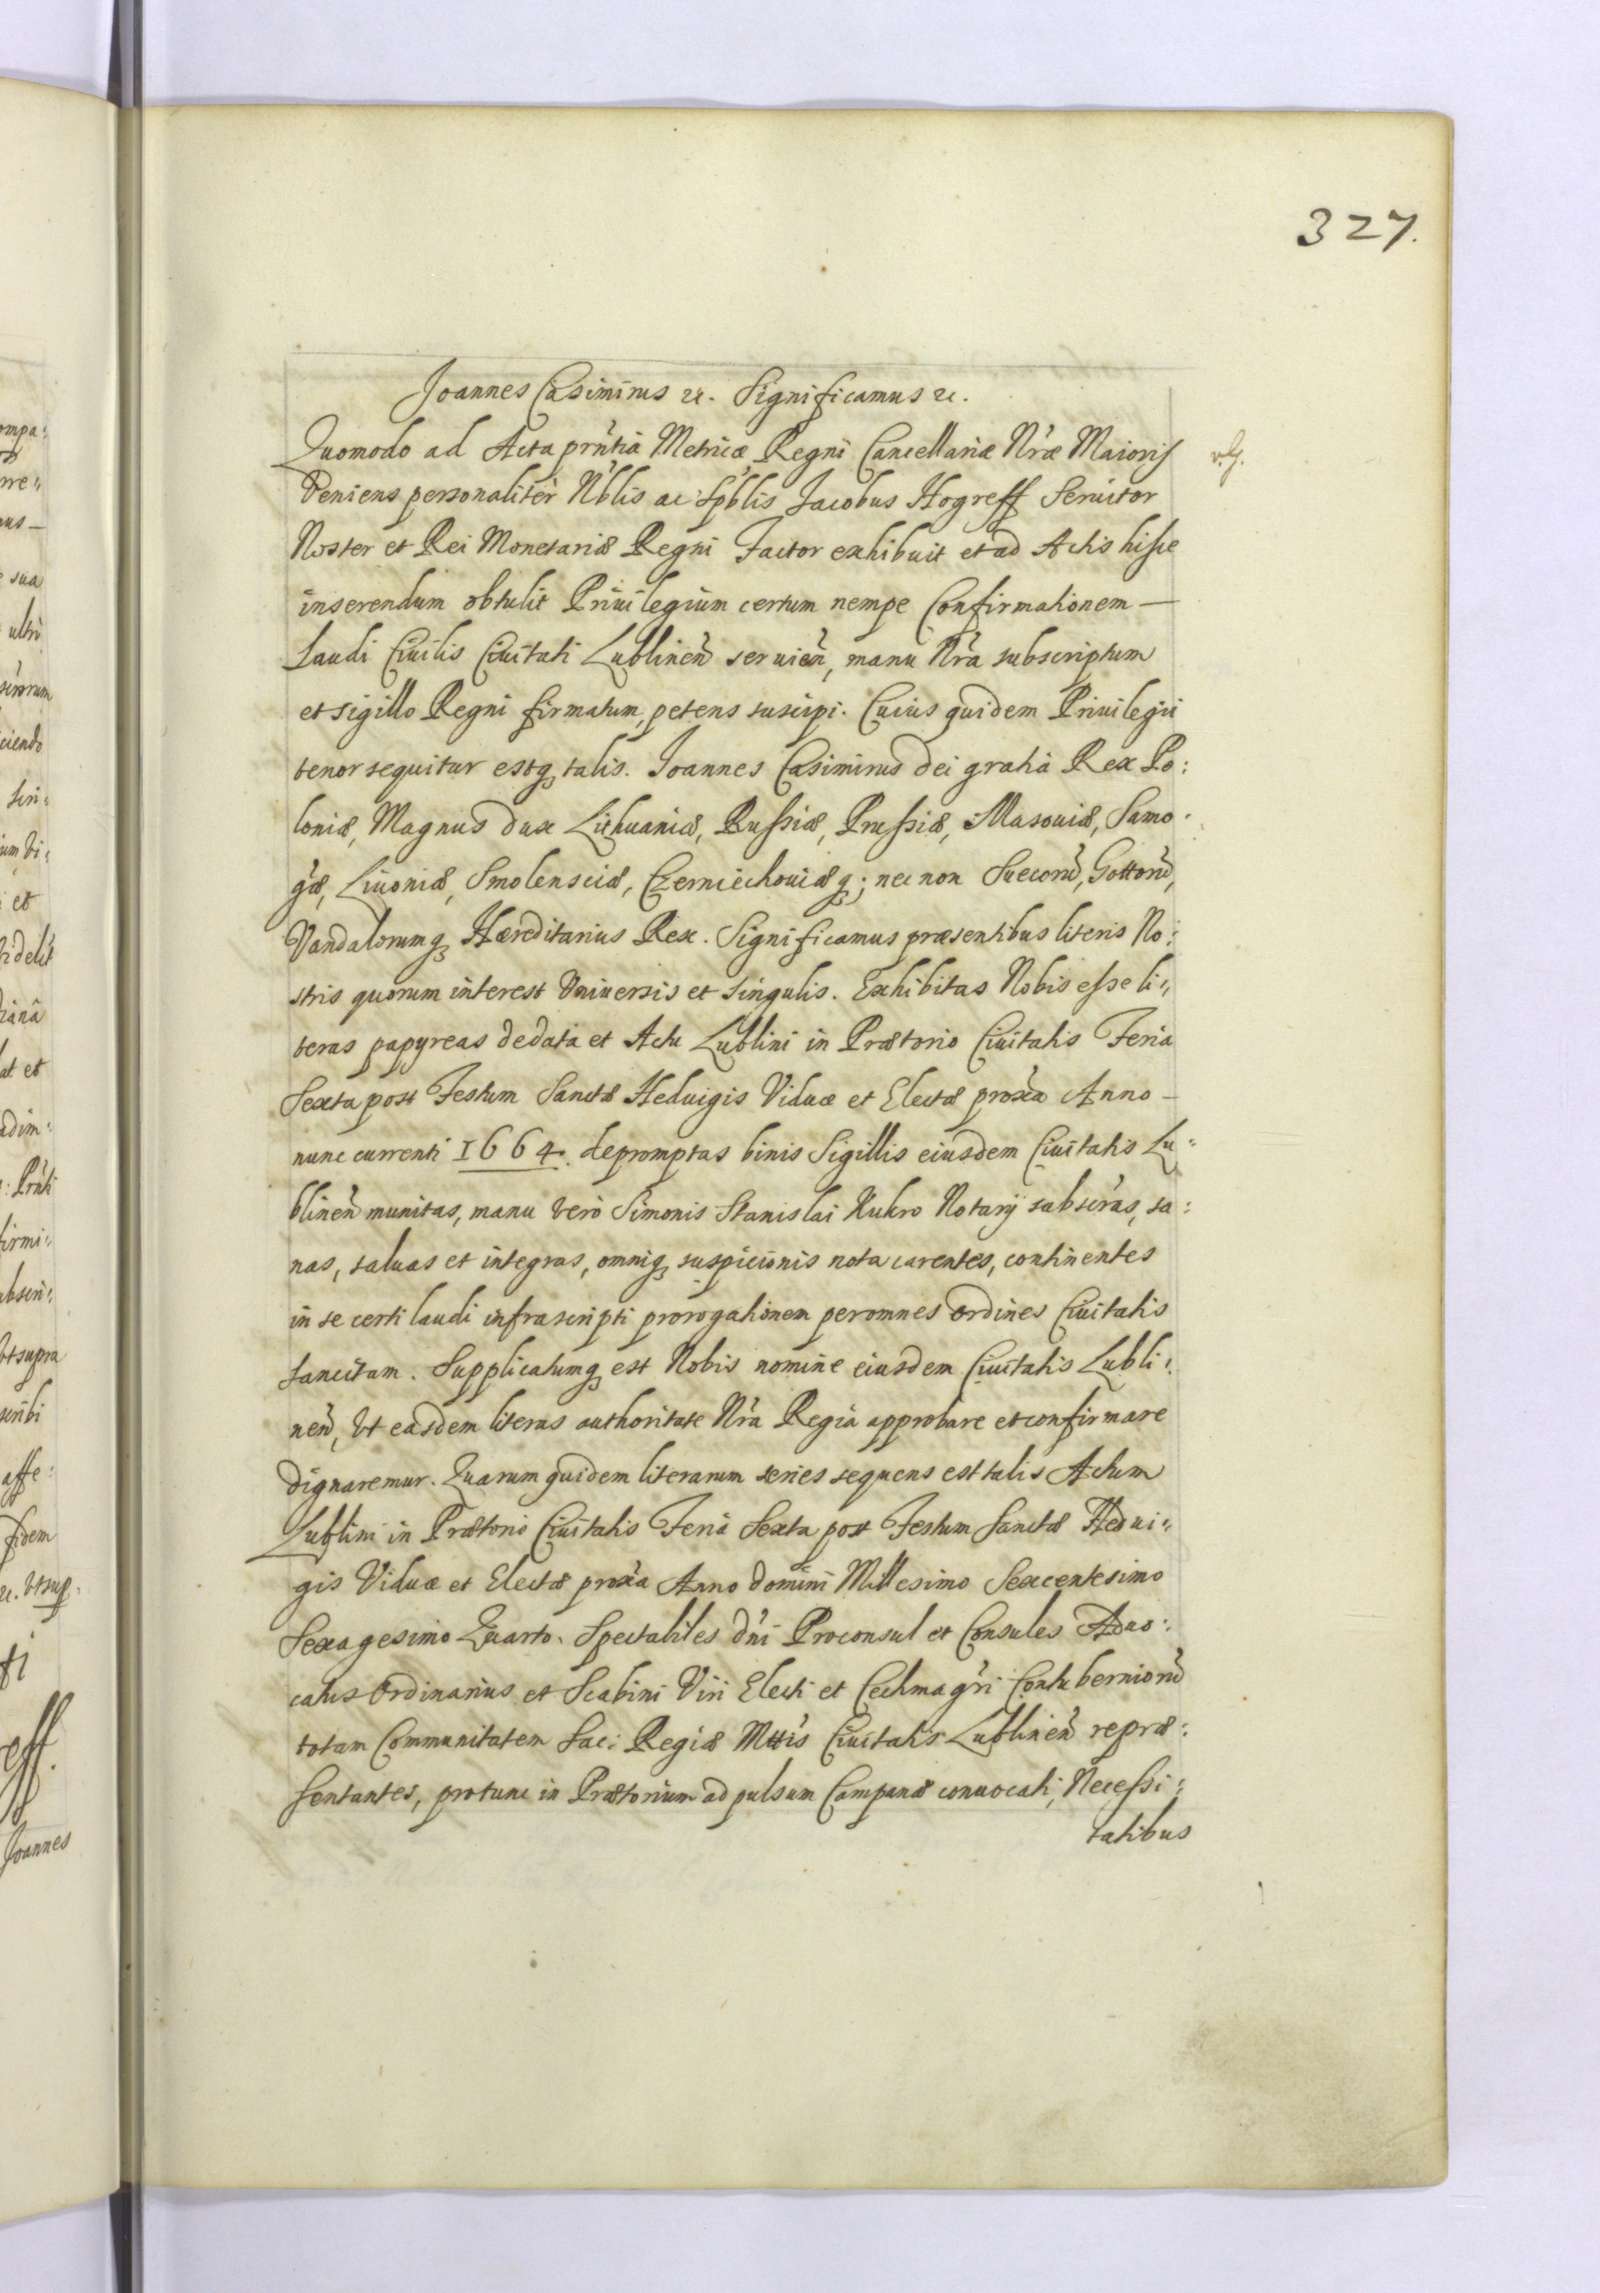 327.
Joannes Casimirus etc. Significamus etc.
Quomodo ad Acta prñtia Metricæ Regni Cancellariæ Nræ Maioris
Veniens personaliter Nblis ac Spblis Jacobus Hogreff Seruitor
Noster et Rei Monetariæ Regni Factor exhibuit et ad Actis hisce
inserendum obtulit Priuilegium certum nempe Confirmationem —
Laudi Ciuilis Ciuitati Lublineñ seruieñ, manu Nra subscriptum
et sigillo Regni firmatum, petens suscipi. Cuius quidem Priuilegii
tenor sequitur estq₃ talis. Joannes Casimirus dei gratia Rex Po:
loniæ, Magnus dux Lithuaniæ, Russiæ, Prussiæ, Masouiæ, Samo:
gæ, Liuoniæ, Smolensciæ, Czerniechouiæq₃; nec non Suecorũ, Gottorũ,
Vandalorumq₃ Hæreditarius Rex. Significamus præsentibus literis No:
stris quorum interest Vniuersis et singulis. Exhibitas Nobis esse li:
teras papyreas dedata et Actu Lublini in Prætorio Ciuitatis Feria
Sexta post Festum Sanctæ Heduigis Viduæ et Electæ proxa Anno —
nunc currenti 1664. depromptas binis Sigillis eiusdem Ciuitatis Lu:
blineñ munitas, manu vero Simonis Stanislai Kukro Notarij subscras, sa:
nas, saluas et integras, omniq₃ suspicionis nota carentes, continentes
in se certi laudi infrascripti prorogationem per omnes Ordines Ciuitatis
sancitam. Supplicatumq₃ est Nobis nomine eiusdem Ciuitatis Lubli:
neñ, Vt easdem literas authoritate Nra Regia approbare et confirmare
dignaremur. Quarum quidem literarum series sequens est talis Actum
Lublini in Prætorio Ciuitatis Feria Sexta post Festum Sanctæ Hedui:
gis Viduæ et Electæ proxa Anno domini Millesimo Sexcentesimo
Sexagesimo Quarto. Spectabiles dni Proconsul et Consules Aduo:
catus Ordinarius et Scabini Viri Electi et Cechmagri Contuberniorũ
totam Communitatem Sac: Regiæ Mttis Ciuitatis Lublineñ repræ:
sentantes, protunc in Prætorium ad pulsum Campanæ conuocati, Necessi:
tatibus